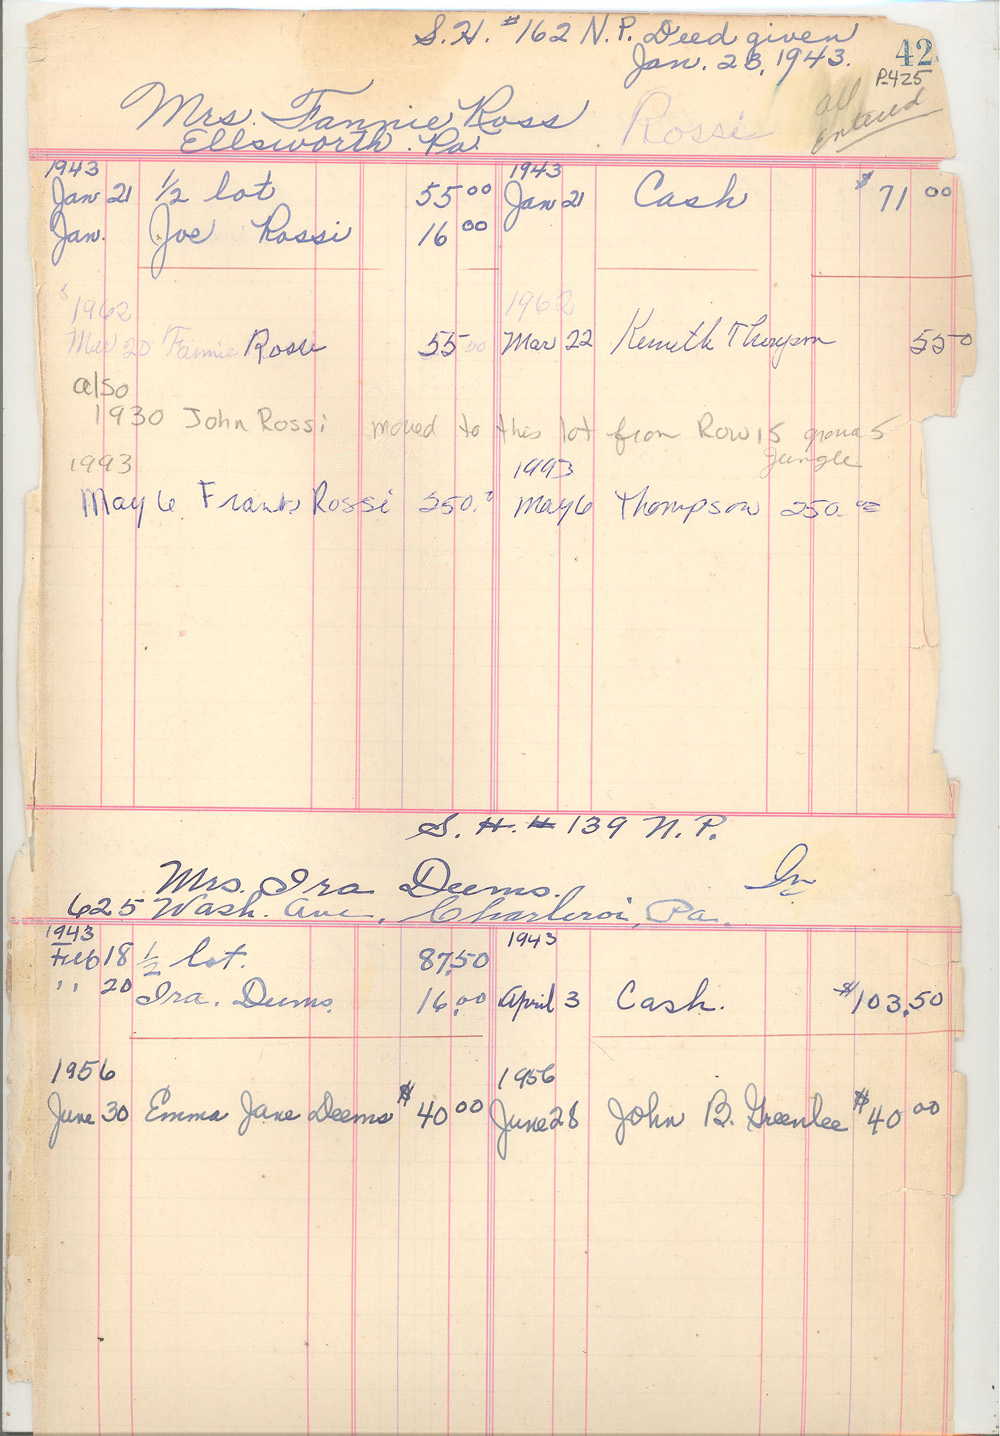 S.H. #162 N.P. Deed given
Jan. 23, 1943.
42
P-425
all entered
Mrs. Fannie Ross Rossi
Ellsworth Pa.
1943 1943
Jan 21 1/2 lot 55 00 Jan 21 Cash $ 71 00
Jan. Joe Rossi 16 00
1962 1962
Mar 20 Fannie Rossi 55 00 Mar 22 Kenneth Thompson 55 0
also
1930 John Rossi moved to this lot from Row 15 grave 5
Jungle
1993 1993
May 6 Frank Rossi 250. May 6 Thompson 250. 00
S. H. # 139 N.P.
Mrs. Ira Deems. In
625 Wash. Ave., Charleroi, Pa.
1943 1943
Feb 18 1/2 lot. 87.50
" 20 Ira. Deems. 16.00 April 3 Cash. $103.50
1956 1956
June 30 Emma Jane Deems $ 40 00 June 28 John B. Greenlee $ 40 00